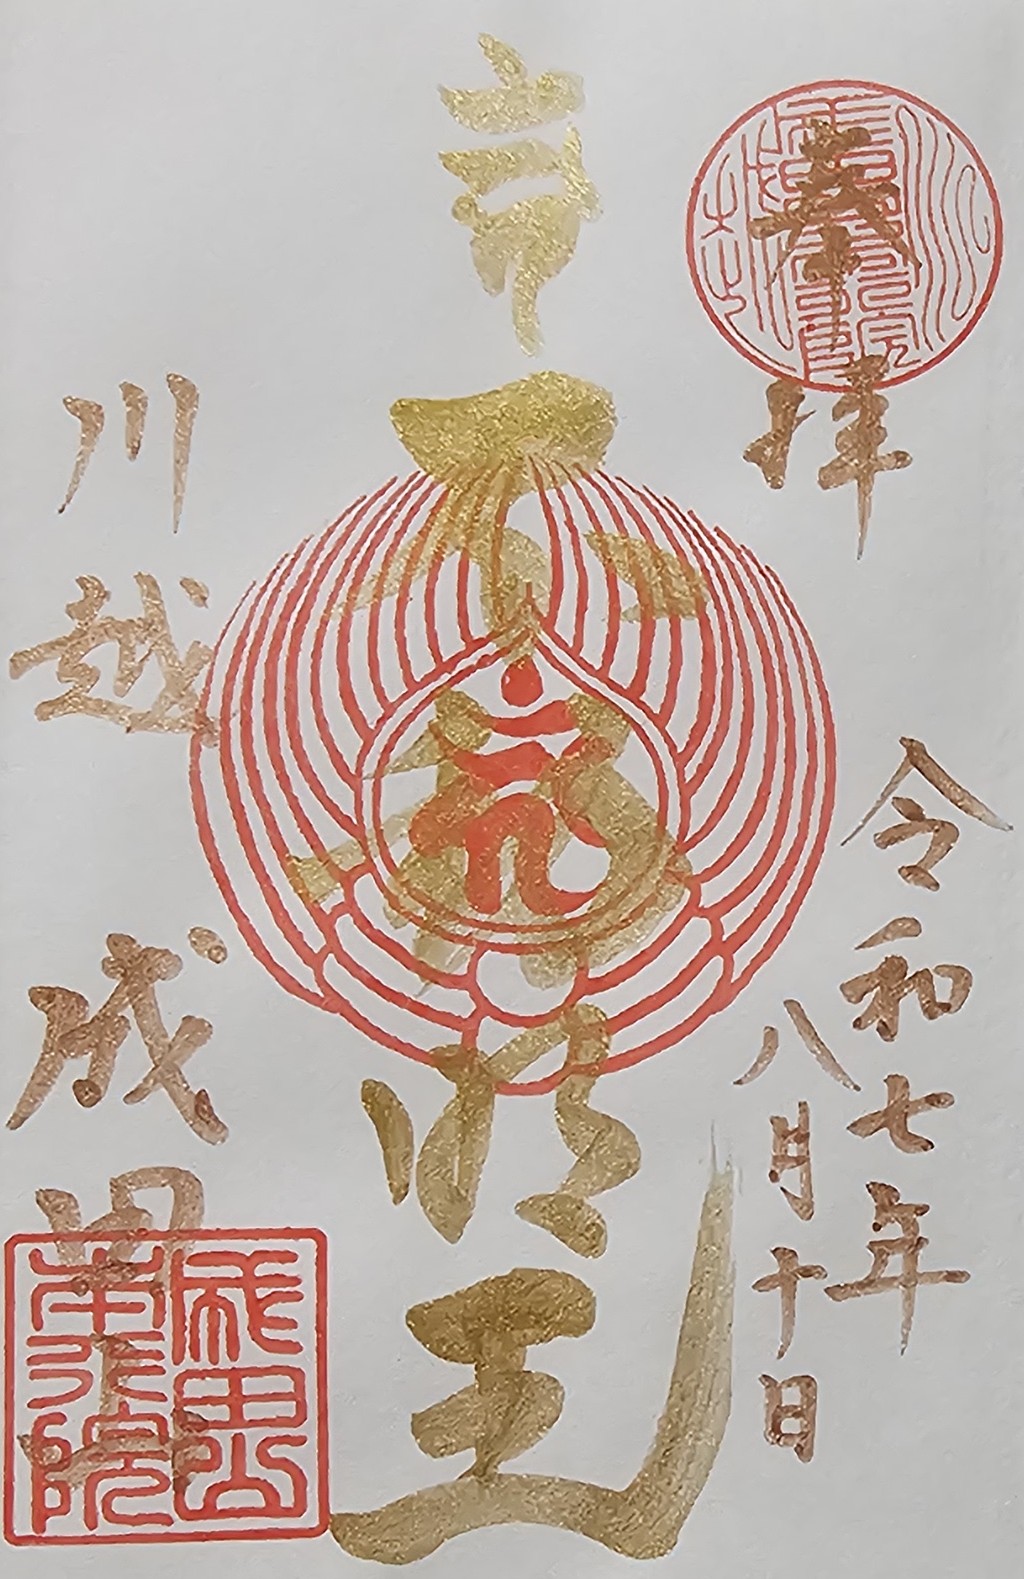 奉拝
令和七年
八月十日
不動明王
川越
成田山
成田山
本行院